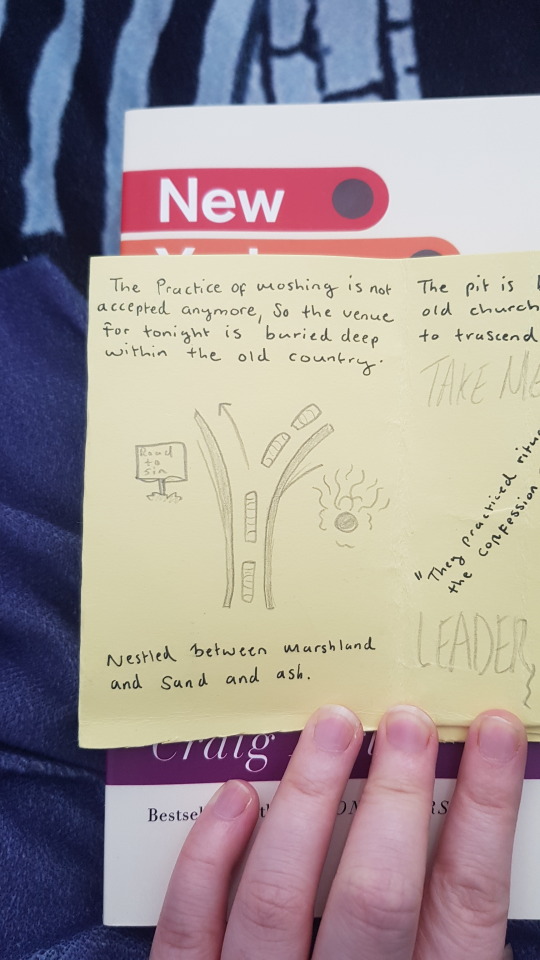 New
The Practice of moshing is not
accepted anymore, So the venue
For tonight is buried deep
within the old country.
Road
to
sin
Nestled between marshland
and Sand and ash.
The pit is
old church
to trascend
TAKE ME
"They practiced ritu
the confession
LEADER
Craig
Bestse